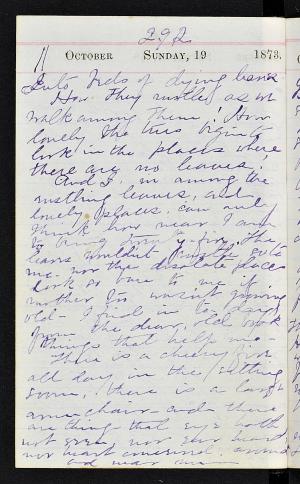 292
11
October Sunday, 19 1873.
Into beds of dying leaves
How they rustle, as we
walk among them! How
lonely the trees begin to
look in the places where
there are no leaves!
And I, in among the
rustling leaves, and
lonely places, can only
think how near I am
to being forty-five. The
leaves wouldn't rustle
me nor the desolate places
look so bare to me if
mother Liz wasn't growing
old. I find in
from the dear, old book
things that help me
There is a cheery fire
all day in the sitting
room, there is a large
armchair and there
are things that eye hath
not seen, nor ear heard
nor heart conceived, around
and near me